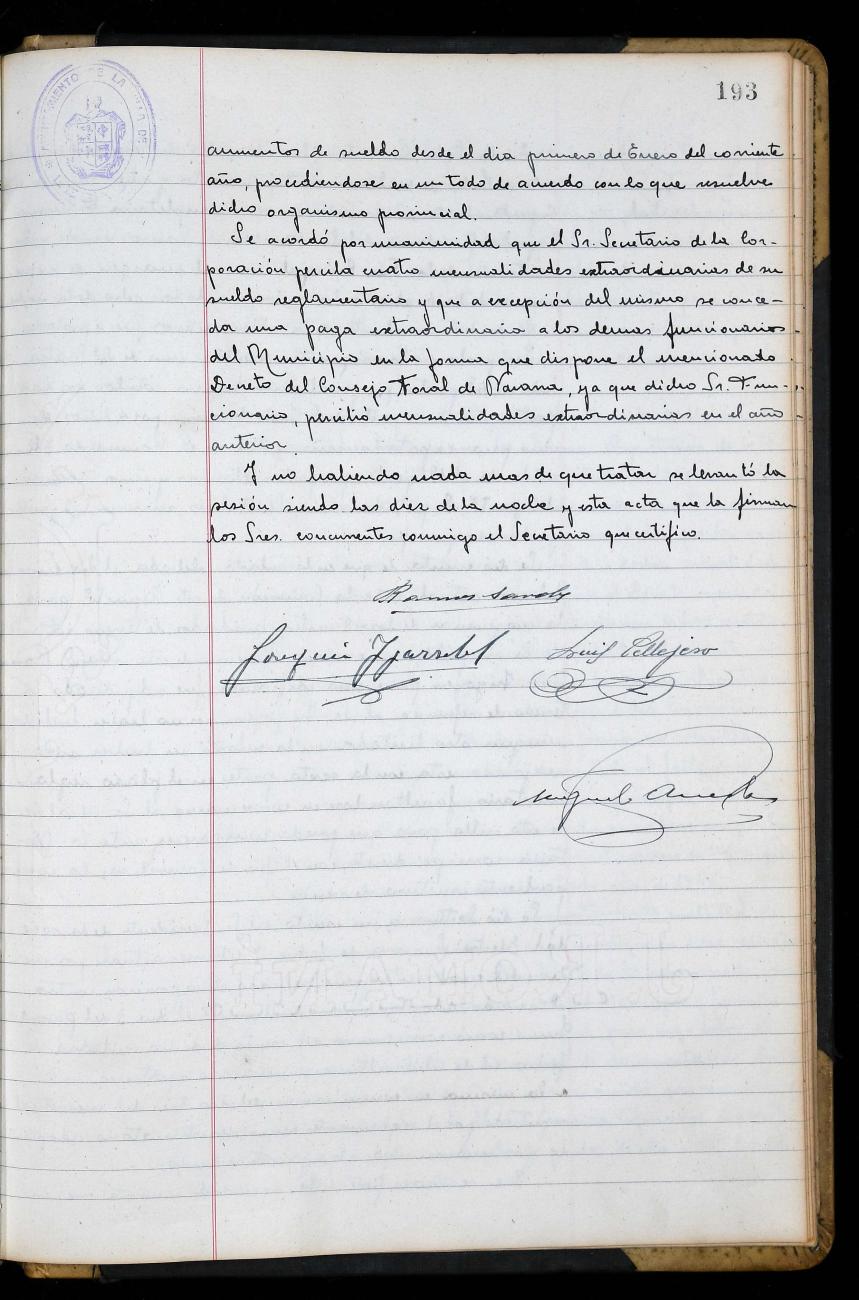 193
AYUNTAMIENTO DE LA
aumentos de sueldo desde el dia primero de Enero del corriente
año, procediendose en un todo de acuerdo con lo que resuelve
dicho organismo provincial.
Se acordó por unanimidad que el Sr. Secretario de la Cor-
poración perciba cuatro mensualidades extraordinarias de su
sueldo reglamentario y que a excepción del mismo se conce-
da una paga extraordinaria a los demas funcionarios
del Municipio en la forma que dispone el mencionado
Decreto del Consejo Foral de Navarra, ya que dicho Sr. Fun-
cionario, percibió mensualidades extraordinarias en el año
anterior.
Y no habiendo nada mas de que tratar se levantó la
sesión siendo las diez de la noche y esta acta que la firman
los Sres. concurrentes conmigo el Secretario que certifico.
Joaquin
Luis
Miguel